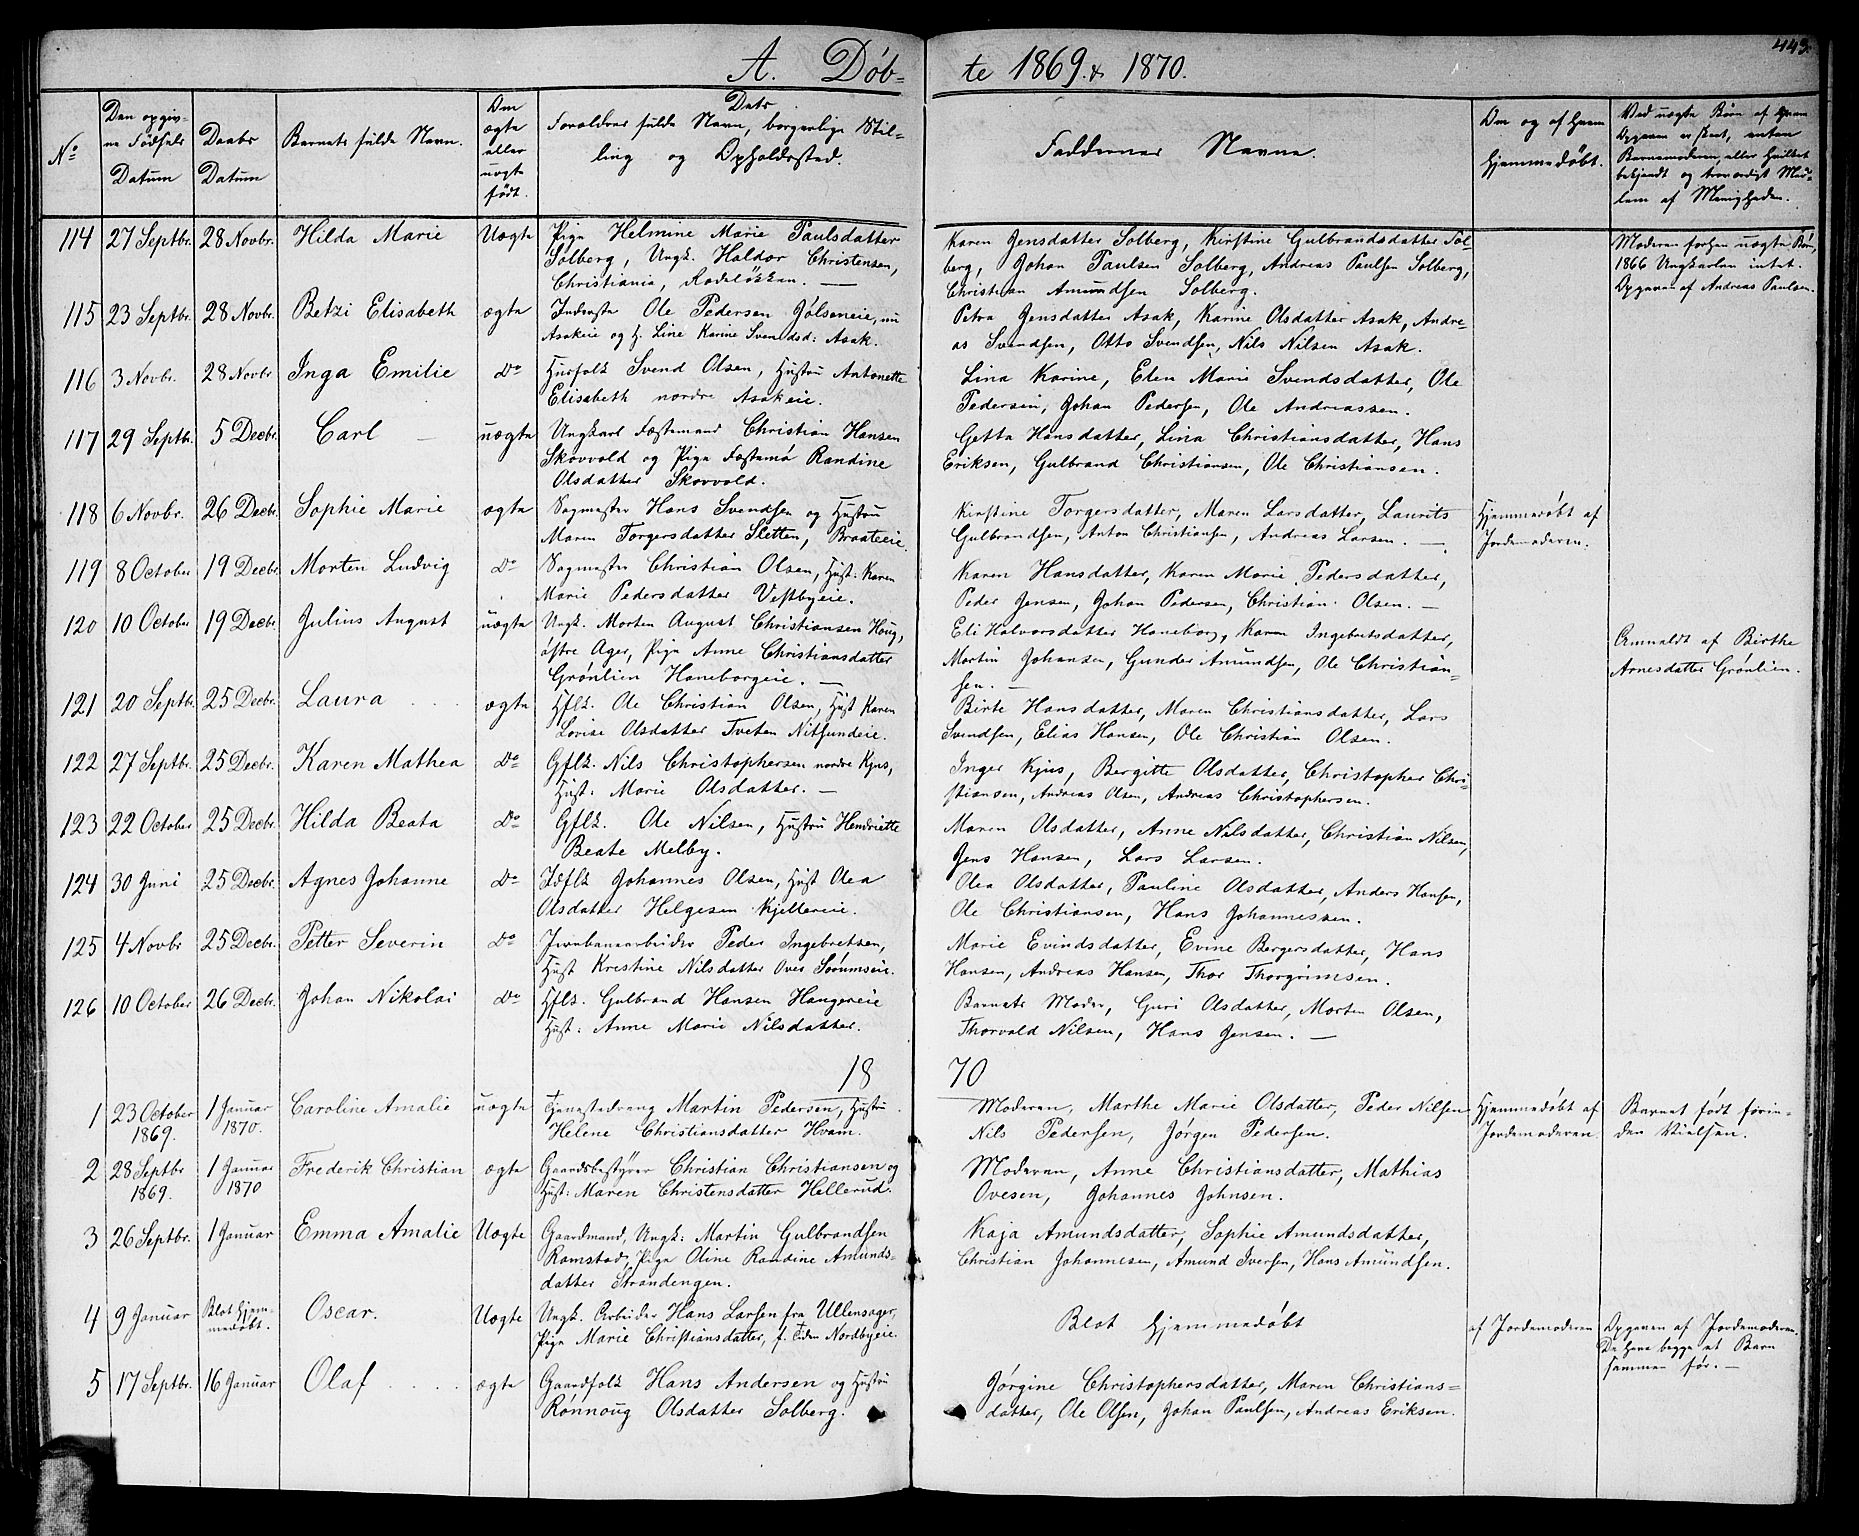 443.
A. Døb-
te 1869. & 1870.
No
Den opgiv-
ne Fødsels
Datum
Daabs
Datum
Barnets fulde Navn.
Om
ægte
eller
uægte
født.
Dets
Forældres fulde Navn, borgerlige Stil-
ling og Opholdssted.
Faddernes Navne.
Om og af hvem
hjemmedøbt.
Ved uægte Børn af hvem
Opgaven er skeet, enten
Barnemoderen, eller hvilket
bekjendt og troværdigt Med-
lem af Menigheden.
114 27 Septbr. 28 Novbr. Hilda Marie Uægte Pige Helmine Marie Paulsdatter
Solberg, Ungk. Haldor Christensen,
Christiania, Rodeløkken. —
Karen Jensdatter Solberg, Kirstine Gulbrandsdatter Sol-
berg, Johan Paulsen Solberg, Andreas Paulsen Solberg,
Christian Amundsen Solberg.
Moderen forhen uægte Børn,
1866 Ungkarlen intet.
Opgaven af Andreas Paulsen.
115 23 Septbr. 28 Novbr. Betzi Elisabeth ægte Inderste Ole Pedersen Gjølseneie, nu
Asakeie og H. Line Karine Svendsd: Asak.
Petra Jensdatter Asak, Karine Olsdatter Asak, Andre-
as Svendsen, Otto Svendsen, Nils Nilsen Asak.
116 3 Novbr. 28 Novbr Inga Emilie Do Husfolk Svend Olsen, Hustru Antonette
Elisabeth nordre Asakeie.
Lina Karine, Elen Marie Svendsdatter, Ole
Pedersen, Johan Pedersen, Ole Andreassen.
117 29 Septbr. 5 Decbr. Carl — uægte Ungkarl Fæstemand Christian Hansen
Skovvold og Pige Fæstemø Randine
Olsdatter Skovvold.
Getta Hansdatter, Lina Christiansdatter, Hans
Eriksen, Gulbrand Christiansen, Ole Christiansen.
118 6 Novbr. 26 Decbr. Sophie Marie ægte Sagmester Hans Svendsen og Hustru
Maren Torgersdatter Sletten, Braateeie.
Kirstine Torgersdatter, Maren Larsdatter, Laurits
Gulbrandsen, Anton Christiansen, Andreas Larsen. —
Hjemmedøbt af
Jordemoderen.
119 8 October 19 Decbr. Morten Ludvig Do Sagmester Christian Olsen, Hust: Karen
Marie Pedersdatter Vestbyeie.
Karen Hansdatter, Karen Marie Pedersdatter,
Peder Jensen, Johan Pedersen, Christian Olsen. —
120 10 October 19 Decbr. Julius August uægte Ungk. Morten August Christiansen Houg,
østre Ager, Pige Anne Christiansdatter
Grønlien Haneborgeie. —
Eli Halvorsdatter Haneborg, Karen Ingebretsdatter,
Martin Johansen, Gunder Amundsen, Ole Christian-
sen. —
Anmeldt af Birthe
Arnesdatter Grønlien.
121 20 Septbr. 25 Decbr. Laura . . . ægte Hflk. Ole Christian Olsen, Hust Karen
Lovise Olsdatter Tveten Nitsundeie.
Birte Hansdatter, Maren Christiansdatter, Lars
Svendsen, Elias Hansen, Ole Christian Olsen.
122 27 Septbr. 25 Decbr. Karen Mathea Do Gflk. Nils Christophersen nordre Kjus,
Hust: Marie Olsdatter. —
Inger Kjus, Bergitte Olsdatter, Christopher Chri-
stiansen, Andreas Olsen, Andreas Christophersen.
123 22 October 25 Decbr. Hilda Beata Do Gflk. Ole Nilsen, Hustru Henriette
Beate Melby.
Maren Olsdatter, Anne Nilsdatter, Christian Nilsen,
Jens Hansen, Lars Larsen.
124 30 Juni 25 Decbr. Agnes Johanne Do Idflk Johannes Olsen, Hust Olea
Olsdatter Helgesen Kjellereie.
Olea Olsdatter, Pauline Olsdatter, Anders Hansen,
Ole Christiansen, Hans Johannessen.
125 4 Novbr 25 Decbr. Petter Severin Do Jernbanearbeider Peder Ingebretsen,
Hust Krestine Nilsdatter Oves Sørumseie.
Marie Evindsdatter, Evine Bergersdatter, Hans
Hansen, Andreas Hansen, Thor Thorgrimsen.
126 10 October 26 Decbr. Johan Nikolai Do Hflk. Gulbrand Hansen Haugereie
Hust: Anne Marie Nilsdatter.
Barnets Moder, Guri Olsdatter, Morten Olsen,
Thorvald Nilsen, Hans Jensen. —
18 70
1 23 October
1869. 1 Januar
1870. Caroline Amalie uægte Tjenestedreng Martin Pedersen, Hustru
Helene Christiansdatter Hvam.
Moderen, Marthe Marie Olsdatter, Peder Nilsen
Nils Pedersen, Jørgen Pedersen.
Hjemmedøbt af
Jordemoderen.
Barnet født førin-
den Vielsen.
2 28 Septbr
1869. 1 Januar
1870 Frederik Christian ægte Gaardsbestyrer Christian Christiansen og
Hust: Maren Christensdatter Hellerud.
Moderen, Anne Christiansdatter, Mathias
Ovesen, Johannes Johnsen.
3 26 Septbr. 1 Januar Emma Amalie Uægte Gaardmand, Ungk: Martin Gulbrandsen
Ramstad, Pige Oline Randine Amunds-
datter Strandengen.
Kaja Amundsdatter, Sophie Amundsdatter,
Christian Johannesen, Amund Iversen, Hans Amundsen.
4 9 Januar Blot hjem-
medøbt. Oscar. Uægte Ungk. Arbeider Hans Larsen fra Ullensager,
Pige Marie Christiansdatter, f. Eiden Nordbyeie.
Blot hjemmedøbt
af Jordemoderen
Opgaven af Jordemoderen.
De have begge et Barn
sammen før. —
5 17 Septbr. 16 Januar Olaf . . . . ægte Gaardfolk Hans Andersen og Hustru
Rønnoug Olsdatter Solberg.
Jørgine Christophersdatter, Maren Christians-
datter, Ole Olsen, Johan Paulsen, Andreas Eriksen.